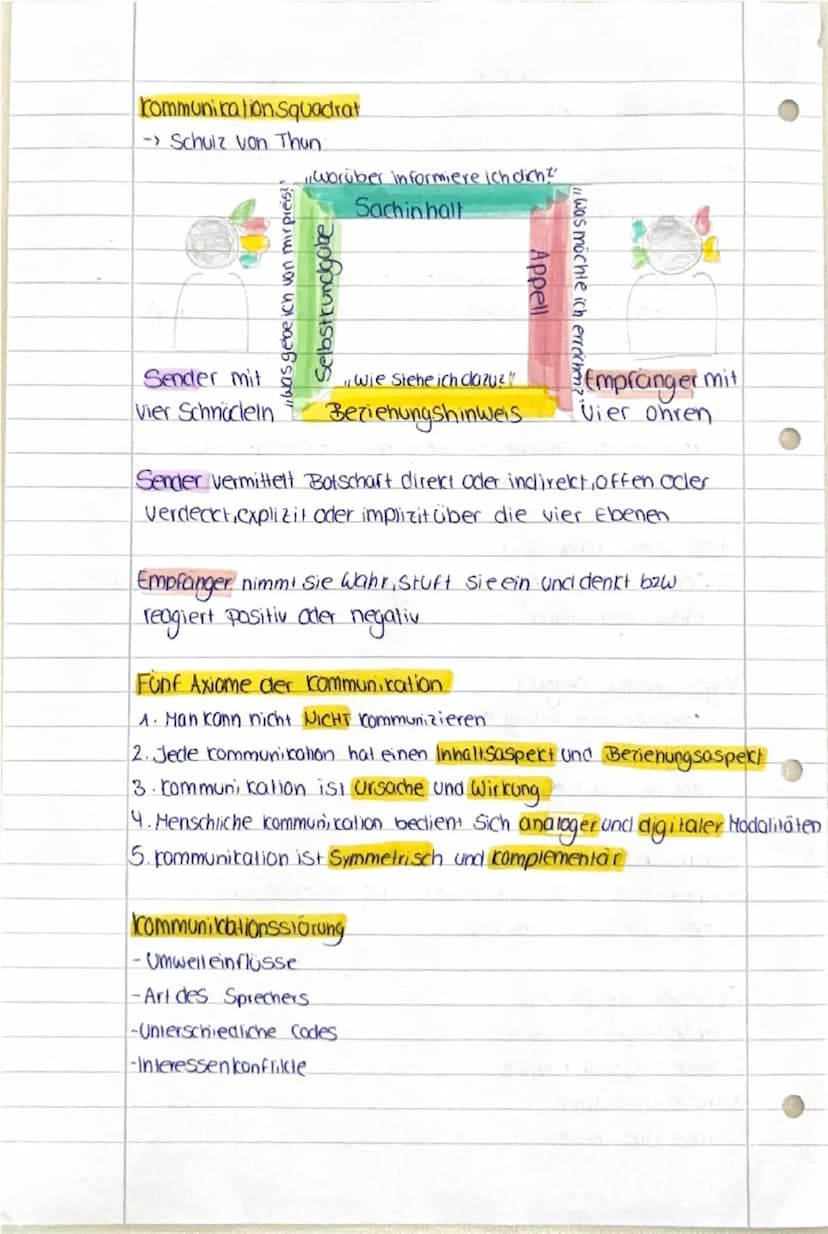 Kommunikationsquadrat
-> Schulz von Thun
„Worüber informiere ich dich?"
Sachinhalt
„Was gebe ich von mir preis?"
Selbstkundgabe
Appell
„Was möchte ich erreichen?"
„Wie stehe ich dazu?"
Beziehungshinweis
Sender mit
vier Schnäbeln
Empfänger mit
vier Ohren
Sender vermittelt Botschaft direkt oder indirekt, offen oder
verdeckt, explizit oder implizit über die vier Ebenen
Empfänger nimmt sie wahr, stuft sie ein und denkt bzw
reagiert positiv oder negativ
Fünf Axiome der Kommunikation
1. Man kann nicht NICHT kommunizieren
2. Jede Kommunikation hat einen Inhaltsaspekt und Beziehungsaspekt
3. Kommunikation ist Ursache und Wirkung
4. Menschliche Kommunikation bedient sich analoger und digitaler Modalitäten
5. Kommunikation ist Symmetrisch und komplementär
Kommunikationsstörung
- Umwelteinflüsse
- Art des Sprechers
- Unterschiedliche Codes
- Interessenkonflikte